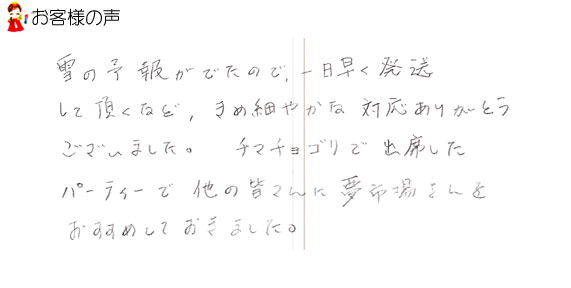 お客様の声
雪の予報がでたので、一日早く発送
して頂くなど、きめ細やかな対応ありがとう
ございました。 チマチョゴリで出席した
パーティーで他の皆さんに夢市場さんを
おすすめしておきました。